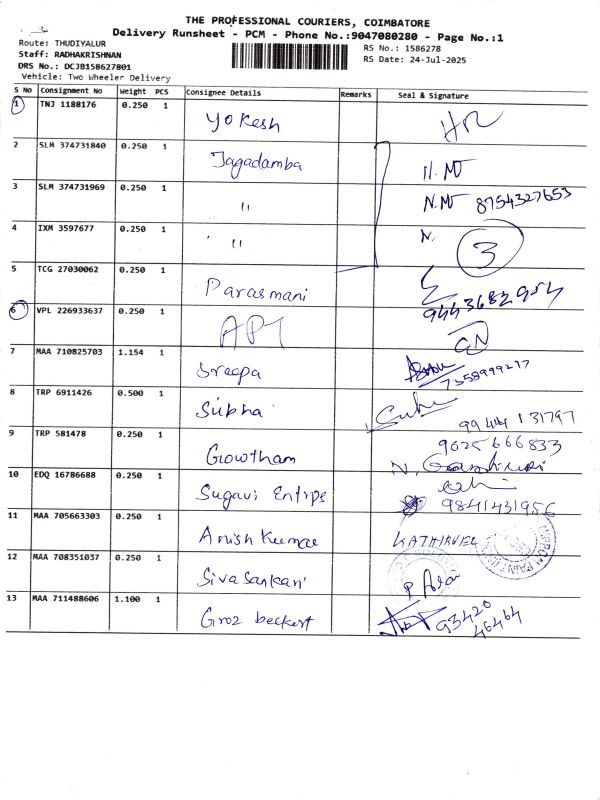 THE PROFESSIONAL COURIERS, COIMBATORE
Delivery Runsheet - PCM - Phone No.:9047080280 - Page No.:1
Route: THUDIYALUR
RS No.: 1586278
Staff: RADHAKRISHNAN
RS Date: 24-Jul-2025
DRS No.: DCJB158627801
Vehicle: Two Wheeler Delivery
S No Consignment No Weight PCS Consignee Details Remarks Seal & Signature
1 TNJ 1188176 0.250 1 Yokesh
2 SLM 374731840 0.250 1 Jagadamba N.M
3 SLM 374731969 0.250 1 " N.M 8754327653
4 IXM 3597677 0.250 1 " N. 3
5 TCG 27030062 0.250 1 Parasmani 9443682954
6 VPL 226933637 0.250 1 API
7 MAA 710825703 1.154 1 7358999217
8 TRP 6911426 0.500 1 Subha 99444 131797
9 TRP 581478 0.250 1 Gowtham 9025666833
10 EDQ 16786688 0.250 1 Sugavi Entrpe 9841431956
11 MAA 705663303 0.250 1 Anish Kumar KATHIRVEL
12 MAA 708351037 0.250 1 Sivasankari
13 MAA 711488606 1.100 1 Groz beckert 93420
46464